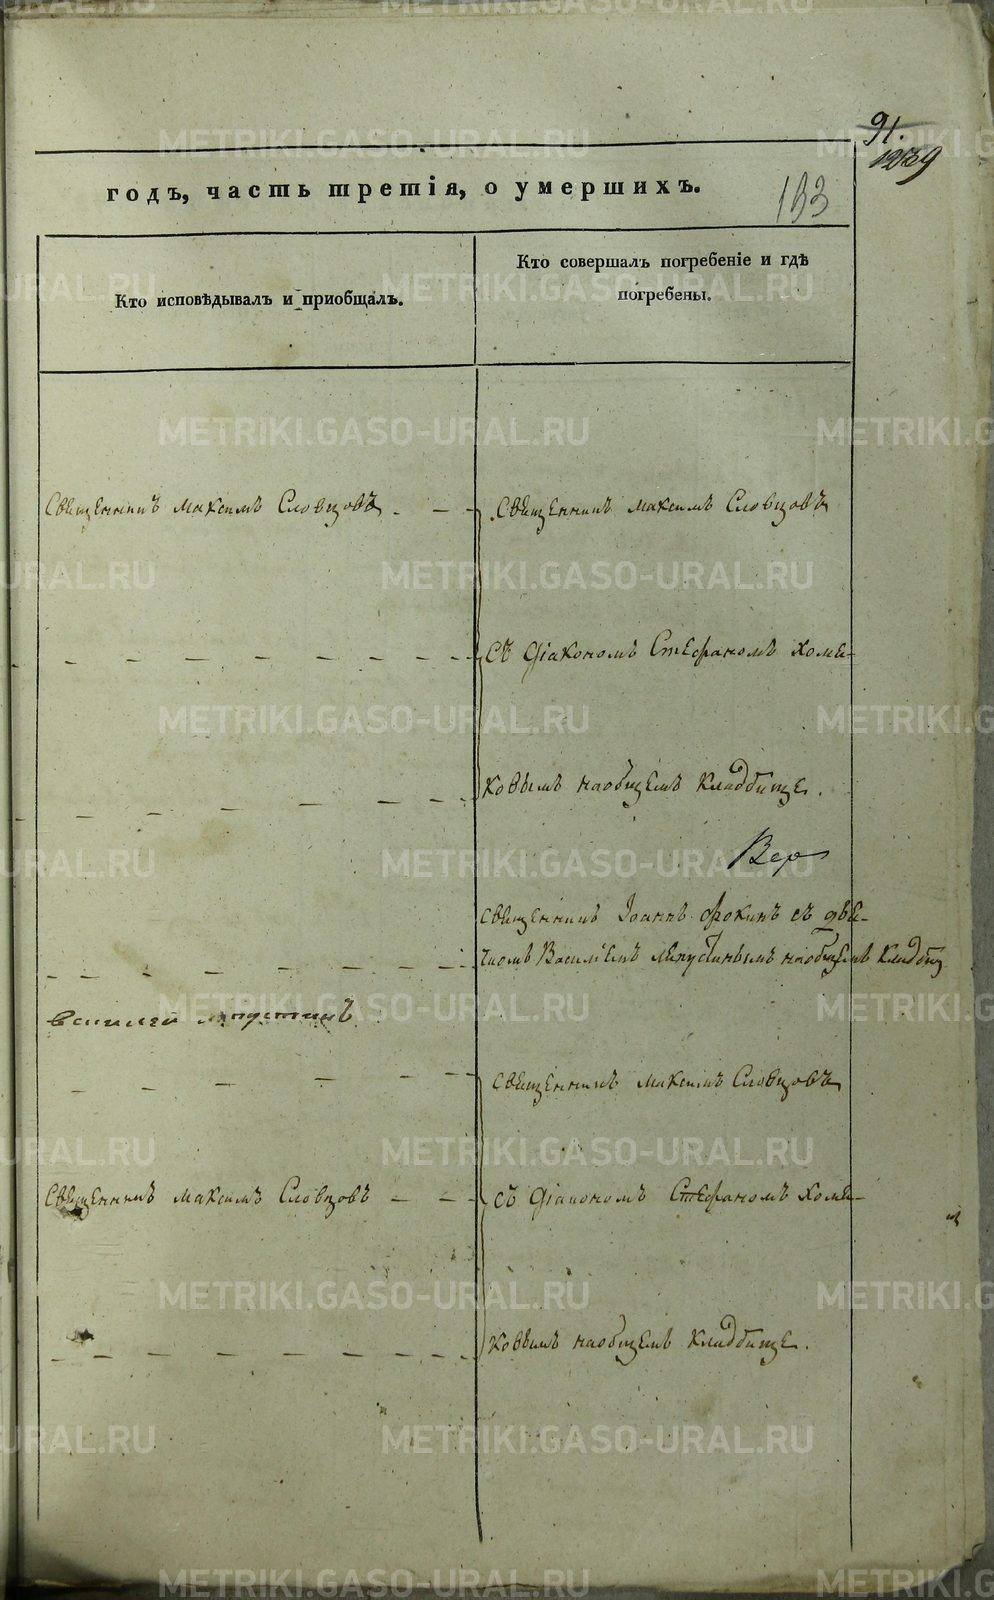 91.
1239
годъ, часть третія, о умершихъ.
133
Кто исповѣдывалъ и пріобщалъ.
Кто совершалъ погребеніе и гдѣ
погребены.
Священникъ Максимъ Словцовъ
Священникъ Максимъ Словцовъ
съ Діакономъ Стефаномъ Хоме-
ковымъ на общемъ кладбище.
Вер
священникъ Іоаннъ Фокинъ съ дья-
Василіемъ на общемъ кладбищ
василей
священникъ Максимъ Словцовъ
Священникъ Максимъ Словцовъ
съ Діакономъ Стефаномъ Хоме-
ковымъ на общемъ кладбище.
METRIKI.GASO-URAL.RU